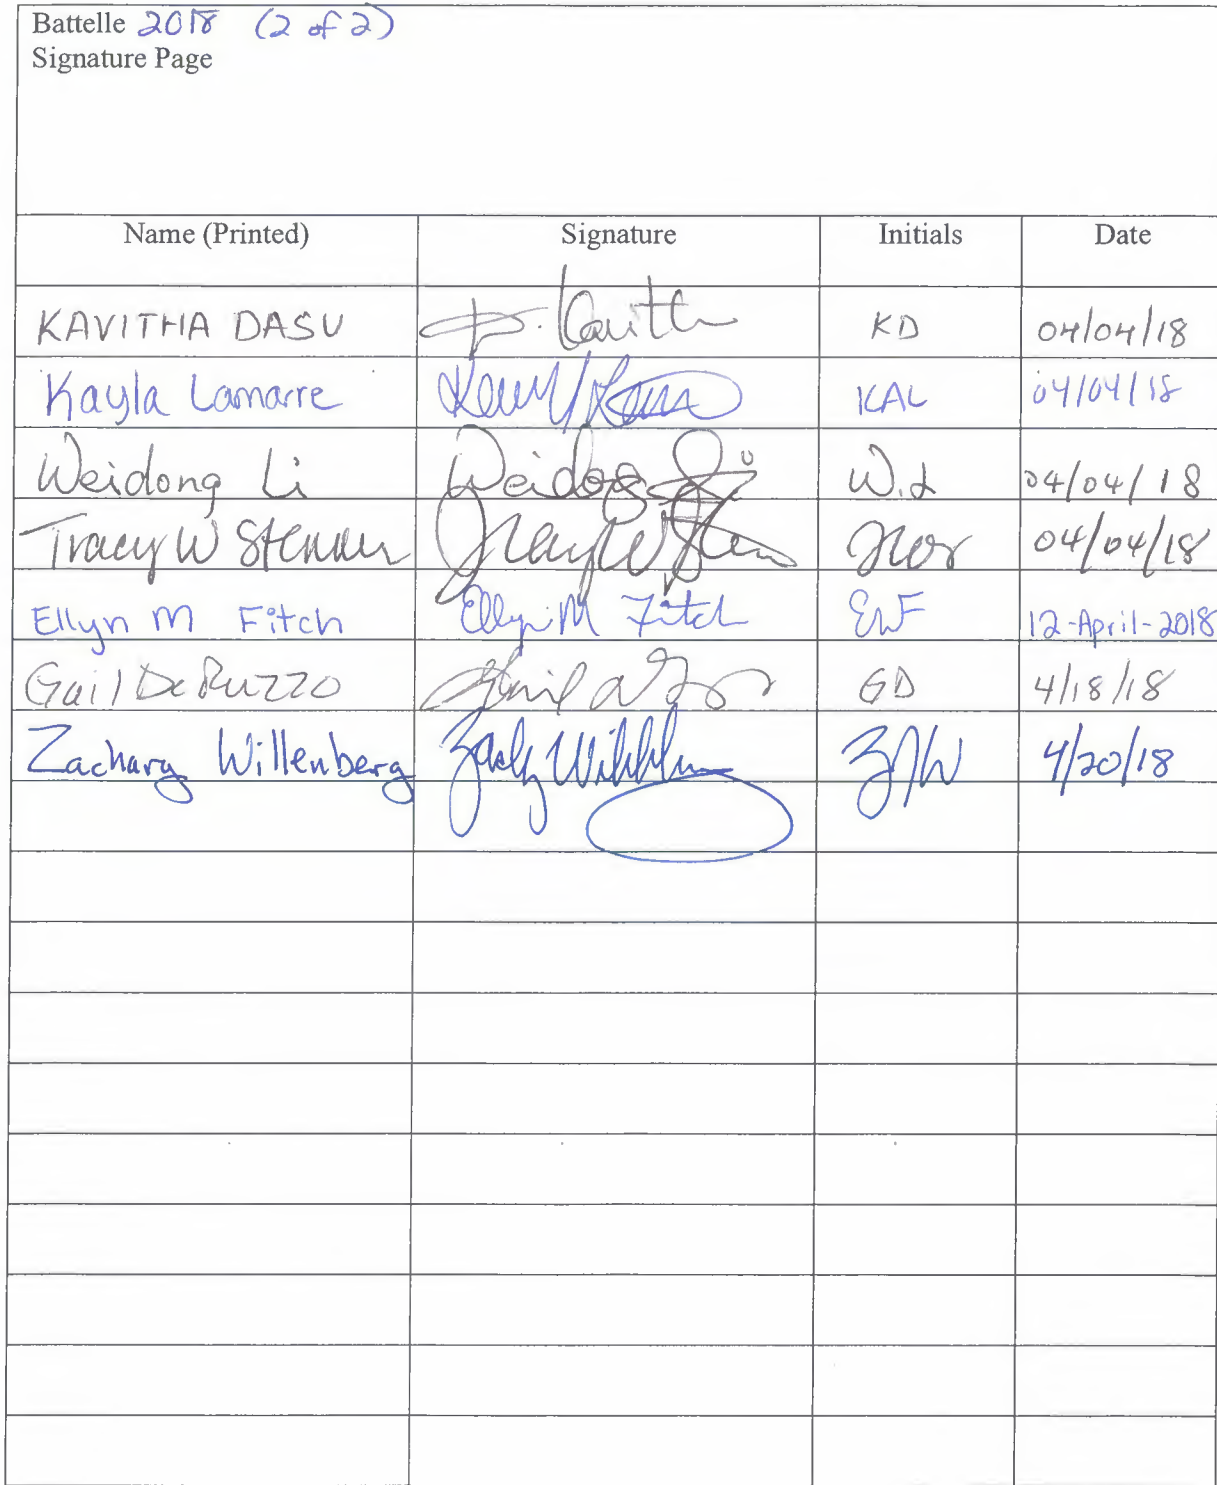 Battelle 2018 (2 of 2)
Signature Page
Name (Printed) Signature Initials Date
KAVITHA DASU D. Kavitha KD 04/04/18
Kayla Lamarre KAL 04/04/18
Weidong Li Weidong Li W.L 04/04/18
Tracy W Stenner Tracy W Sten 04/04/18
Ellyn M Fitch Ellyn M Fitch EMF 12-April-2018
Gail DeRuzzo GD 4/18/18
Zachary Willenberg ZJW 4/20/18